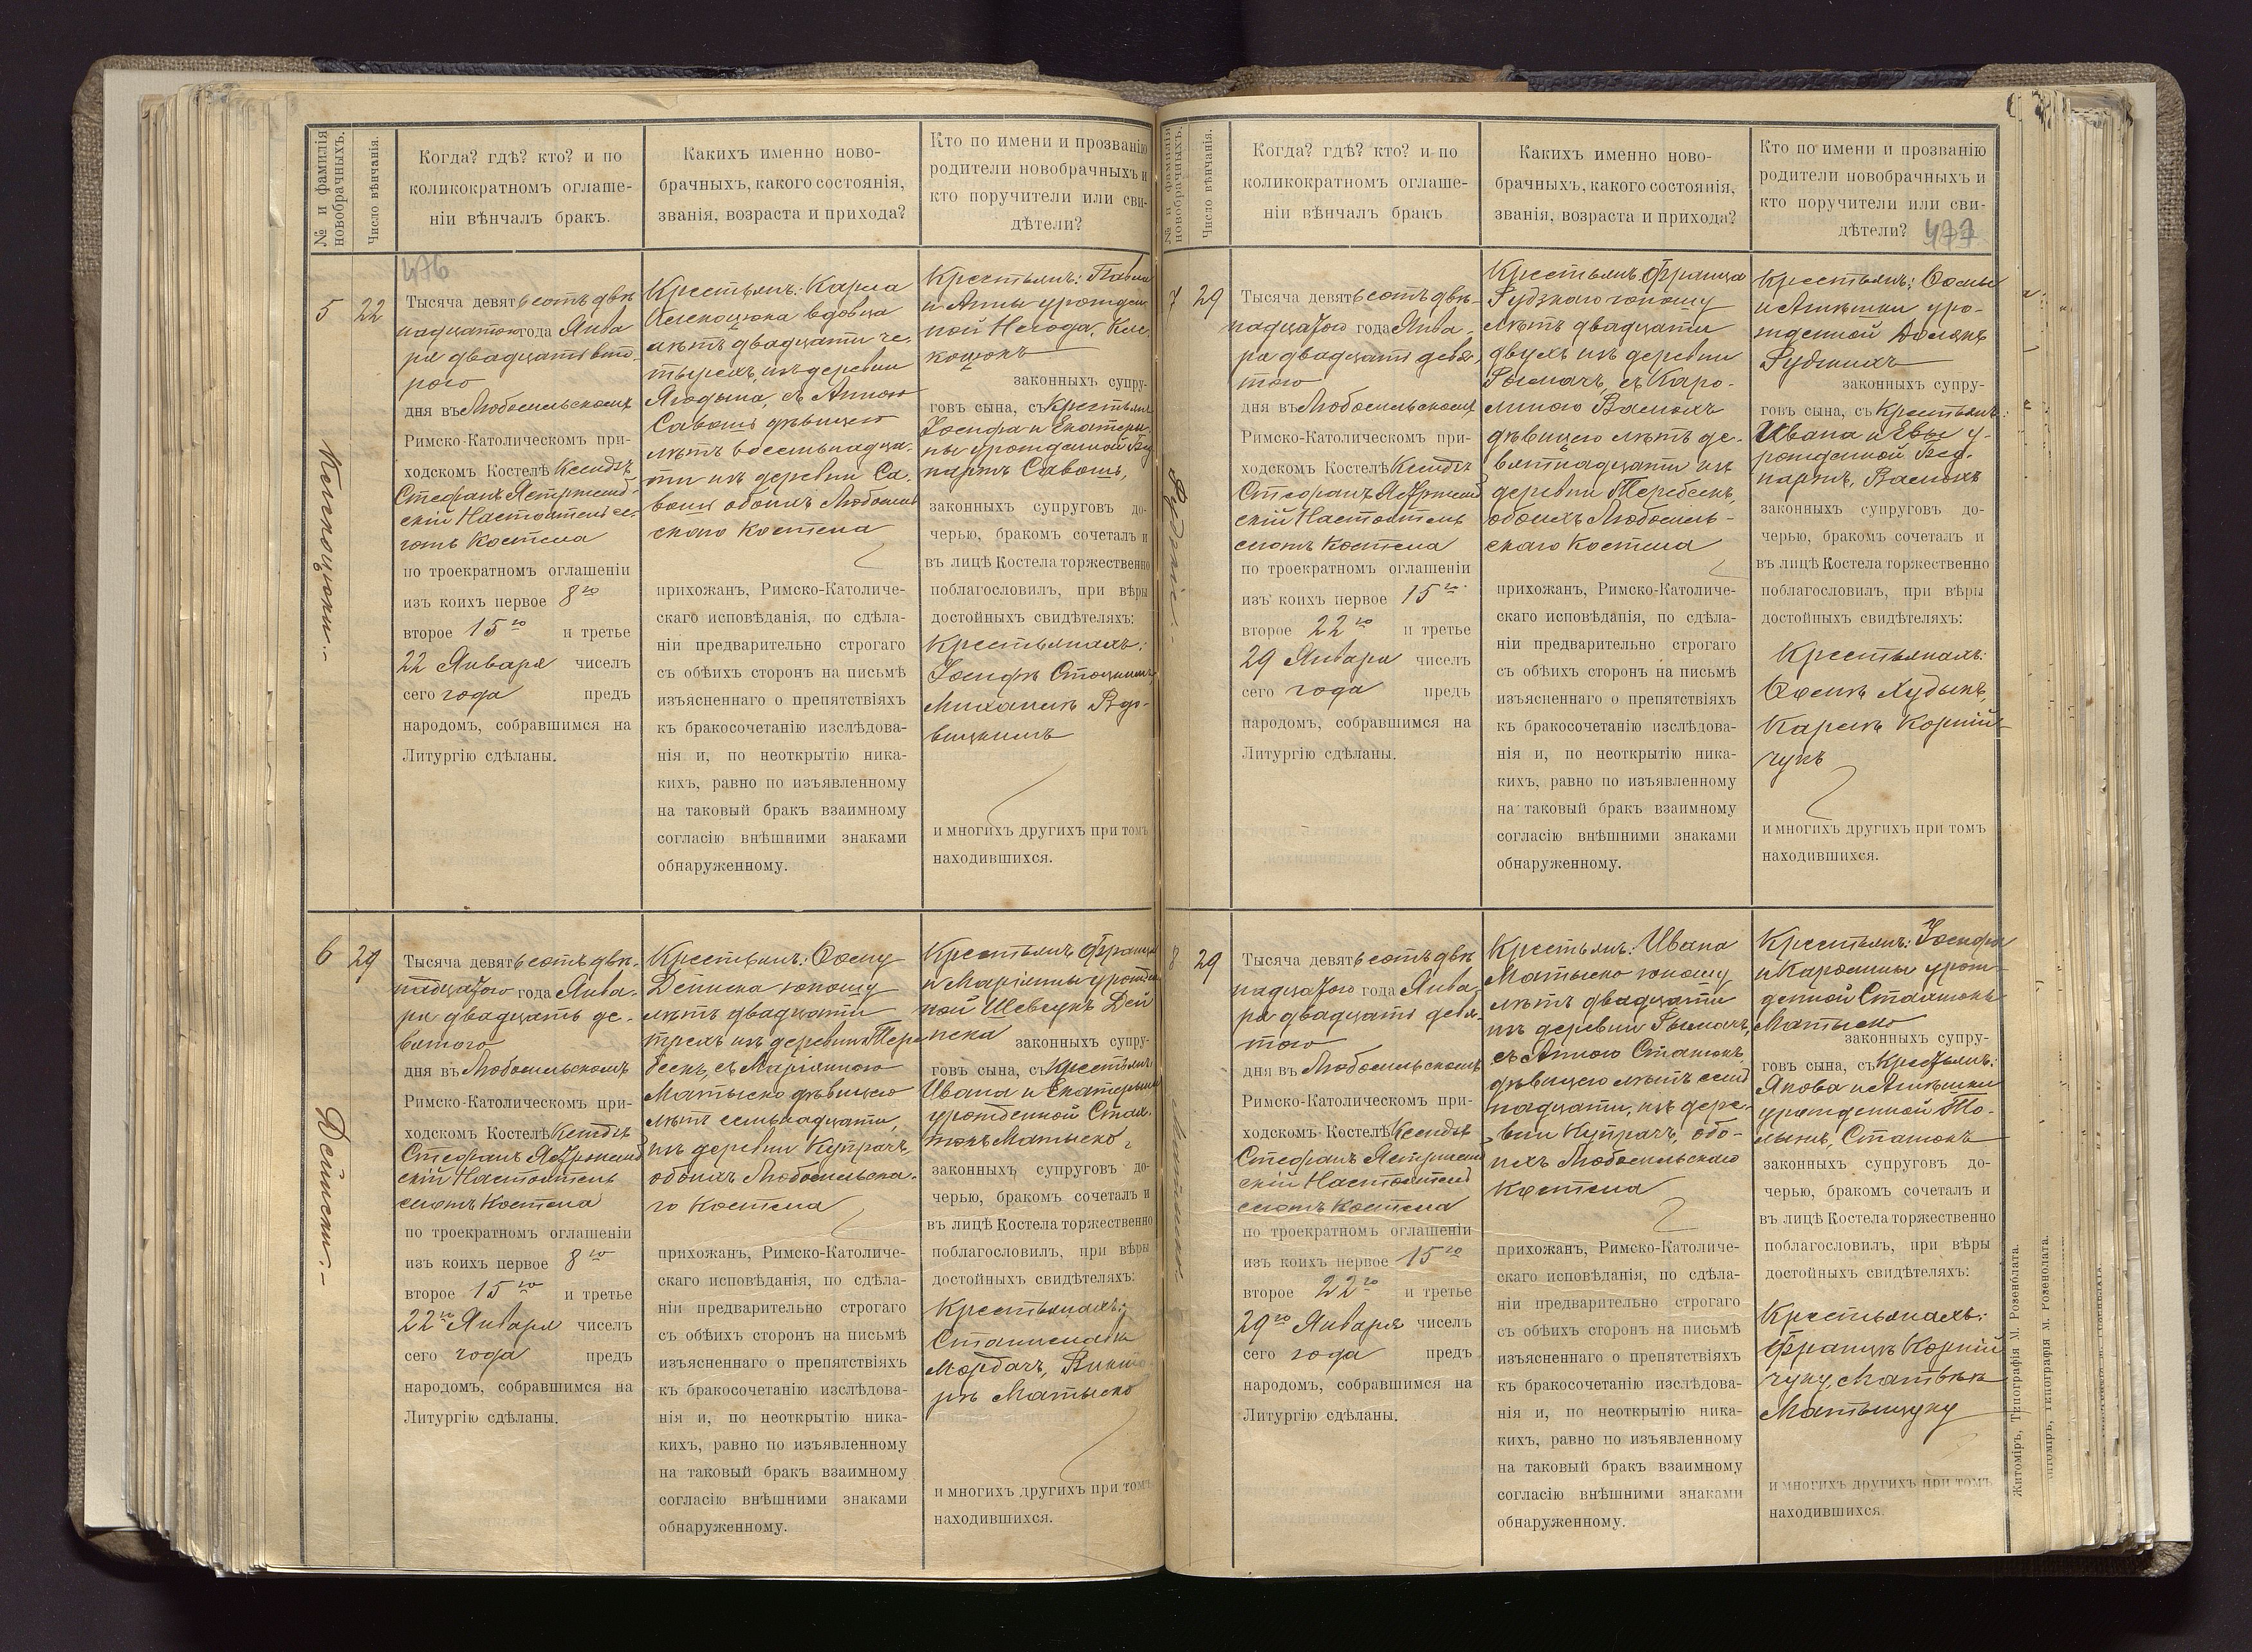 № и фамилія новобрачныхъ.
Число вѣнчанія.
Когда? гдѣ? кто? и по
коликократномъ оглаше-
ніи вѣнчалъ бракъ.
Какихъ именно ново-
брачныхъ, какого состоянія,
званія, возраста и прихода?
Кто по имени и прозванію
родители новобрачныхъ и
кто поручители или сви-
дѣтели?
476
5
22
Тысяча девятьсотъ двѣ
надцатого года Янва
ря двадцать вто-
рого
дня въ Любомльскомъ
Римско-Католическомъ при-
ходскомъ Костелѣ Ксендзъ
Стефанъ Ястржемб-
скій Настоятель се-
готъ Костела
по троекратномъ оглашеніи
изъ коихъ первое 8го
второе 15го и третье
22 Января чиселъ
сего года предъ
народомъ, собравшимся на
Литургію сдѣланы.
Крестьянъ: Карла
вдовца
лѣтъ двадцати че-
тырехъ, изъ деревни
Ягодына, съ Анною
Савошъ дѣвицею
лѣтъ восемьнадца-
ти изъ деревни Са-
воши обоихъ Любомль
скаго Костела
прихожанъ, Римско-Католиче-
скаго исповѣданія, по сдѣла-
ніи предварительно строгаго
съ обѣихъ сторонъ на письмѣ
изъясненнаго о препятствіяхъ
къ бракосочетанію изслѣдова-
нія и, по неоткрытію ника-
кихъ, равно по изъявленному
на таковый бракъ взаимному
согласію внѣшними знаками
обнаруженному.
Крестьянъ: Павла
и Анны урожден-
ной Негода,
законныхъ супру-
говъ сына, съ Крестьянъ
Іосифа и Екатери-
ны урожденной Бед
наржъ Савошъ,
законныхъ супруговъ до-
черью, бракомъ сочеталъ и
въ лицѣ Костела торжественно
поблагословилъ, при вѣры
достойныхъ свидѣтеляхъ:
Крестьянахъ:
Іосифъ
Михаилъ Вдо-
вицкимъ
и многихъ другихъ при томъ
находившихся.
6
29
Дейнеки.-
Тысяча девятьсотъ двѣ-
надцатого года Янва-
ря двадцать де-
вятого
дня въ Любомльскомъ
Римско-Католическомъ при-
ходскомъ Костелѣ Ксендзъ
Стефанъ Ястржемб
скій Настоятель
сеготъ Костела
по троекратномъ оглашеніи
изъ коихъ первое 8го
второе 15го и третье
22го Января чиселъ
сего года предъ
народомъ, собравшимся на
Литургію сдѣланы.
Крестьянъ: Ѳому
Дейнека юношу
лѣтъ двадцати
трехъ изъ деревни Тере
бескъ, съ Маріянною
Матыско дѣвицею
лѣтъ семьнадцати,
изъ деревни Купрачъ,
обоихъ Любомльска-
го Костела
прихожанъ, Римско-Католиче-
скаго исповѣданія, по сдѣла-
ніи предварительно строгаго
съ обѣихъ сторонъ на письмѣ
изъясненнаго о препятствіяхъ
къ бракосочетанію изслѣдова-
нія и, по неоткрытію ника-
кихъ, равно по изъявленному
на таковый бракъ взаимному
согласію внѣшними знаками
обнаруженному.
Крестьянъ Франца
и Маріянны урожден
ной Шевчукъ Дей
нека законныхъ супру-
говъ сына, съ Крестьянъ:
Ивана и Екатерины
урожденной Стах-
Матыско,
законныхъ супруговъ до-
черью, бракомъ сочеталъ и
въ лицѣ Костела торжественно
поблагословилъ, при вѣры
достойныхъ свидѣтеляхъ:
Крестьянахъ:
Станиславъ
Мордачъ, Викто-
ръ Матыско
и многихъ другихъ при томъ
находившихся.
№ и фамилія новобрачныхъ.
Число вѣнчанія.
Когда? гдѣ? кто? и по
коликократномъ оглаше-
ніи вѣнчалъ бракъ
Какихъ именно ново-
брачныхъ, какого состоянія,
званія, возраста и прихода?
Кто по имени и прозванію
родители новобрачныхъ и
кто поручители или сви-
дѣтели? 477
7
29
Тысяча девятьсотъ двѣ-
надцатого года Янва-
ря двадцать девя-
того
дня въ Любомльскомъ
Римско-Католическомъ при-
ходскомъ Костелѣ Ксендзъ
Стефанъ Ястржемб
скій Настоятель
сеготъ Костела
по троекратномъ оглашеніи
изъ коихъ первое 15го
второе 22го и третье
29 Января чиселъ
сего года предъ
народомъ, собравшимся на
Литургію сдѣланы.
Крестьянъ Франца
Рудзкого юношу
лѣтъ двадцати
двухъ изъ деревни
Рымачъ, съ Каро-
линою
дѣвицею лѣтъ де-
вятнадцати изъ
деревни Теребескъ,
обоихъ Любомль-
скаго Костела
прихожанъ, Римско-Католиче-
скаго исповѣданія, по сдѣла-
ніи предварительно строгаго
съ обѣихъ сторонъ на письмѣ
изъясненнаго о препятствіяхъ
къ бракосочетанію изслѣдова-
нія и, по неоткрытію ника-
кихъ, равно по изъявленному
на таковый бракъ взаимному
согласію внѣшними знаками
обнаруженному.
Крестьянъ: Ѳомы
и Агнѣшки уро-
жденной
Рудзкихъ
законныхъ супру-
говъ сына, съ Крестьянъ:
Ивана и Евы у-
рожденной Бед-
наржъ,
законныхъ супруговъ до-
черью, бракомъ сочеталъ и
въ лицѣ Костела торжественно
поблагословилъ, при вѣры
достойныхъ свидѣтеляхъ:
Крестьянахъ:
Ѳомѣ Худыкъ,
Карлѣ Корній-
чукъ
и многихъ другихъ при томъ
находившихся.
8
29
Тысяча девятьсотъ двѣ
надцатого года Янва-
ря двадцать девя-
того
дня въ Любомльскомъ
Римско-Католическомъ при-
ходскомъ Костелѣ Ксендзъ
Стефанъ Ястржемб
скій Настоятель
сеготъ Костела
по троекратномъ оглашеніи
изъ коихъ первое 15го
второе 22го и третье
29го Января чиселъ
сего года предъ
народомъ, собравшимся на
Литургію сдѣланы.
Крестьянъ: Ивана
Матыско юношу
лѣтъ двадцати
изъ деревни Рымачъ,
съ Анною
дѣвицею лѣтъ семь
надцати, изъ дере-
вни Купрачъ, обо-
ихъ Любомльскаго
Костела
прихожанъ, Римско-Католиче-
скаго исповѣданія, по сдѣла-
ніи предварительно строгаго
съ обѣихъ сторонъ на письмѣ
изъясненнаго о препятствіяхъ
къ бракосочетанію изслѣдова-
нія и, по неоткрытію ника-
кихъ, равно по изъявленному
на таковый бракъ взаимному
согласію внѣшними знаками
обнаруженному.
Крестьянъ: Іосифа
и Каролины урож-
денной
Матыско
законныхъ супру-
говъ сына, съ Крестьянъ:
Якова и Агнѣшки
урожденной
законныхъ супруговъ до-
черью, бракомъ сочеталъ и
въ лицѣ Костела торжественно
поблагословилъ, при вѣры
достойныхъ свидѣтеляхъ:
Крестьянахъ:
Францъ Корній
чуку, Матвѣѣ
Матыщуку
и многихъ другихъ при томъ
находившихся.
Житоміръ, Типографія М. Розенблата.